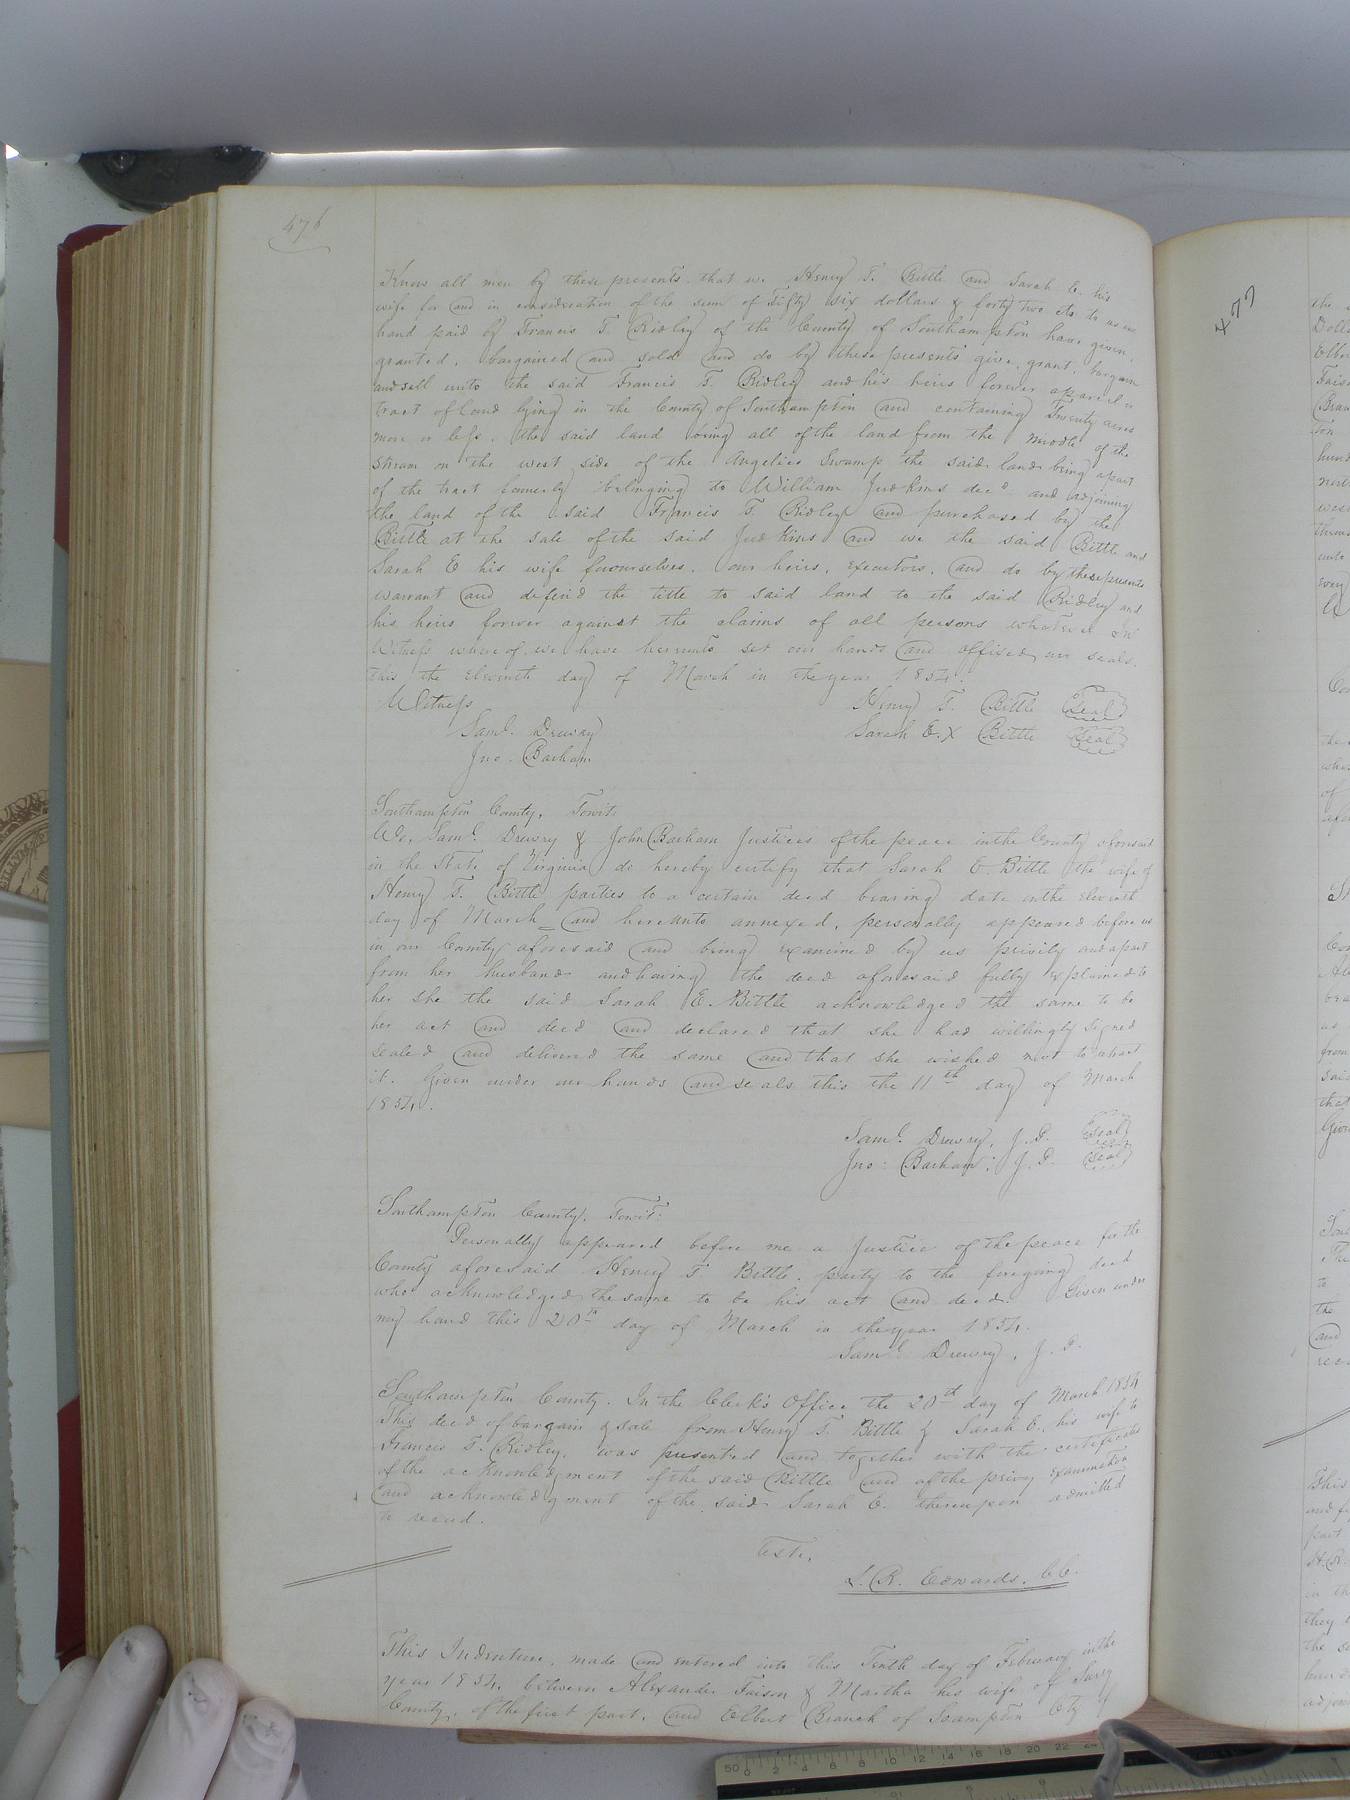 476
Know all men by these presents that we Henry T. Bittle and Sarah E. his
wife for and in consideration of the sum of Fifty six dollars & forty two cts. to us in
hand paid by Francis T. Ridley of the County of Southampton have given,
granted, bargained and sold and do by these presents give, grant, bargain
and sell unto the said Francis T. Ridley and his heirs forever a parcel or
tract of land lying in the County of Southampton and containing Twenty acres
more or less, the said land being all of the land from the middle of the
Stream on the west side of the Angelico Swamp the said land being apart
of the tract formerly belonging to William Judkins decd and adjoining
the land of the said Francis T. Ridley and purchased by the
Bittle at the sale of the said Judkins and we the said Bittle and
Sarah E his wife for ourselves, our heirs, executors, and do by these presents
warrant and defend the title to said land to the said Ridley and
his heirs forever against the claims of all persons whatever In
Witness whereof we have hereunto set our hands and affixed our seals
this the eleventh day of March in the year 1854.
Witness
Henry T. Bittle Seal
Saml. Drewry
Sarah E. X Bittle Seal
Jno. Barham
Southampton County, Towit,
We, Saml. Drewry & John Barham Justices of the peace in the County aforesaid
in the State of Virginia do hereby certify that Sarah E. Bittle the wife of
Henry T. Bittle parties to a certain deed bearing date on the eleventh
day of March and hereunto annexed, personally appeared before us
in our County aforesaid and being examined by us privily and apart
from her husband and having the deed aforesaid fully explained to
her she the said Sarah E. Bittle acknowledged the same to be
her act and deed and declared that she had willingly signed
sealed and delivered the same and that she wished not to retract
it. Given under our hands and seals this the 11th day of March
1854.
Saml. Drewry, J.P. Seal
Jno: Barham, J.P. Seal
Southampton County, Towit:
Personally appeared before me a Justice of the peace for the
County aforesaid Henry T Bittle, party to the foregoing deed
who acknowledged the same to be his act and deed. Given under
my hand this 20th day of March in the year 1854.
Saml Drewry, J.P.
Southampton County. In the Clerk's Office the 20th day of March 1854
This deed of bargain & sale from Henry T. Bittle & Sarah E., his wife to
Francis T. Ridley, was presented and together with the certificates
of the acknowledgment of the said Bittle and of the privy examination
and acknowledgment of the said Sarah E. thereupon admitted
to record.
Teste,
L. R. Edwards. CC.
This Indenture, made and entered into this Tenth day of February in the
year 1854, between Alexander Faison & Martha his wife of Surry
County, of the first part, and Elbert Branch of Soampton Cty of
477